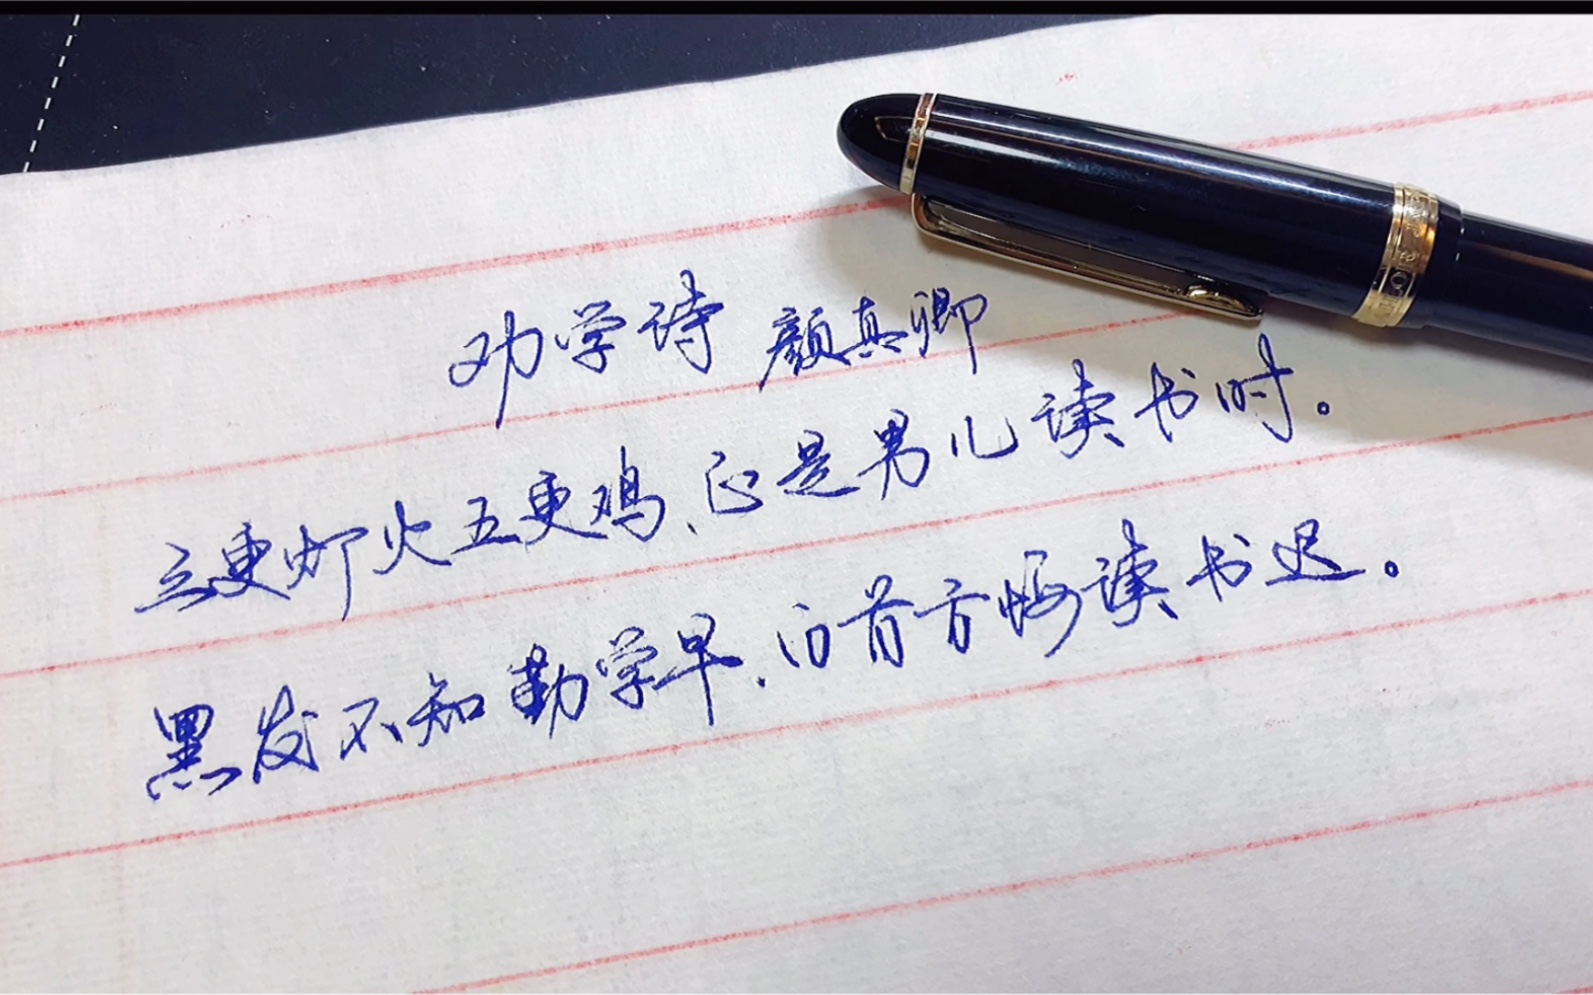 劝学诗 颜真卿
三更灯火五更鸡、正是男儿读书时。
黑发不知勤学早、白首方悔读书迟。